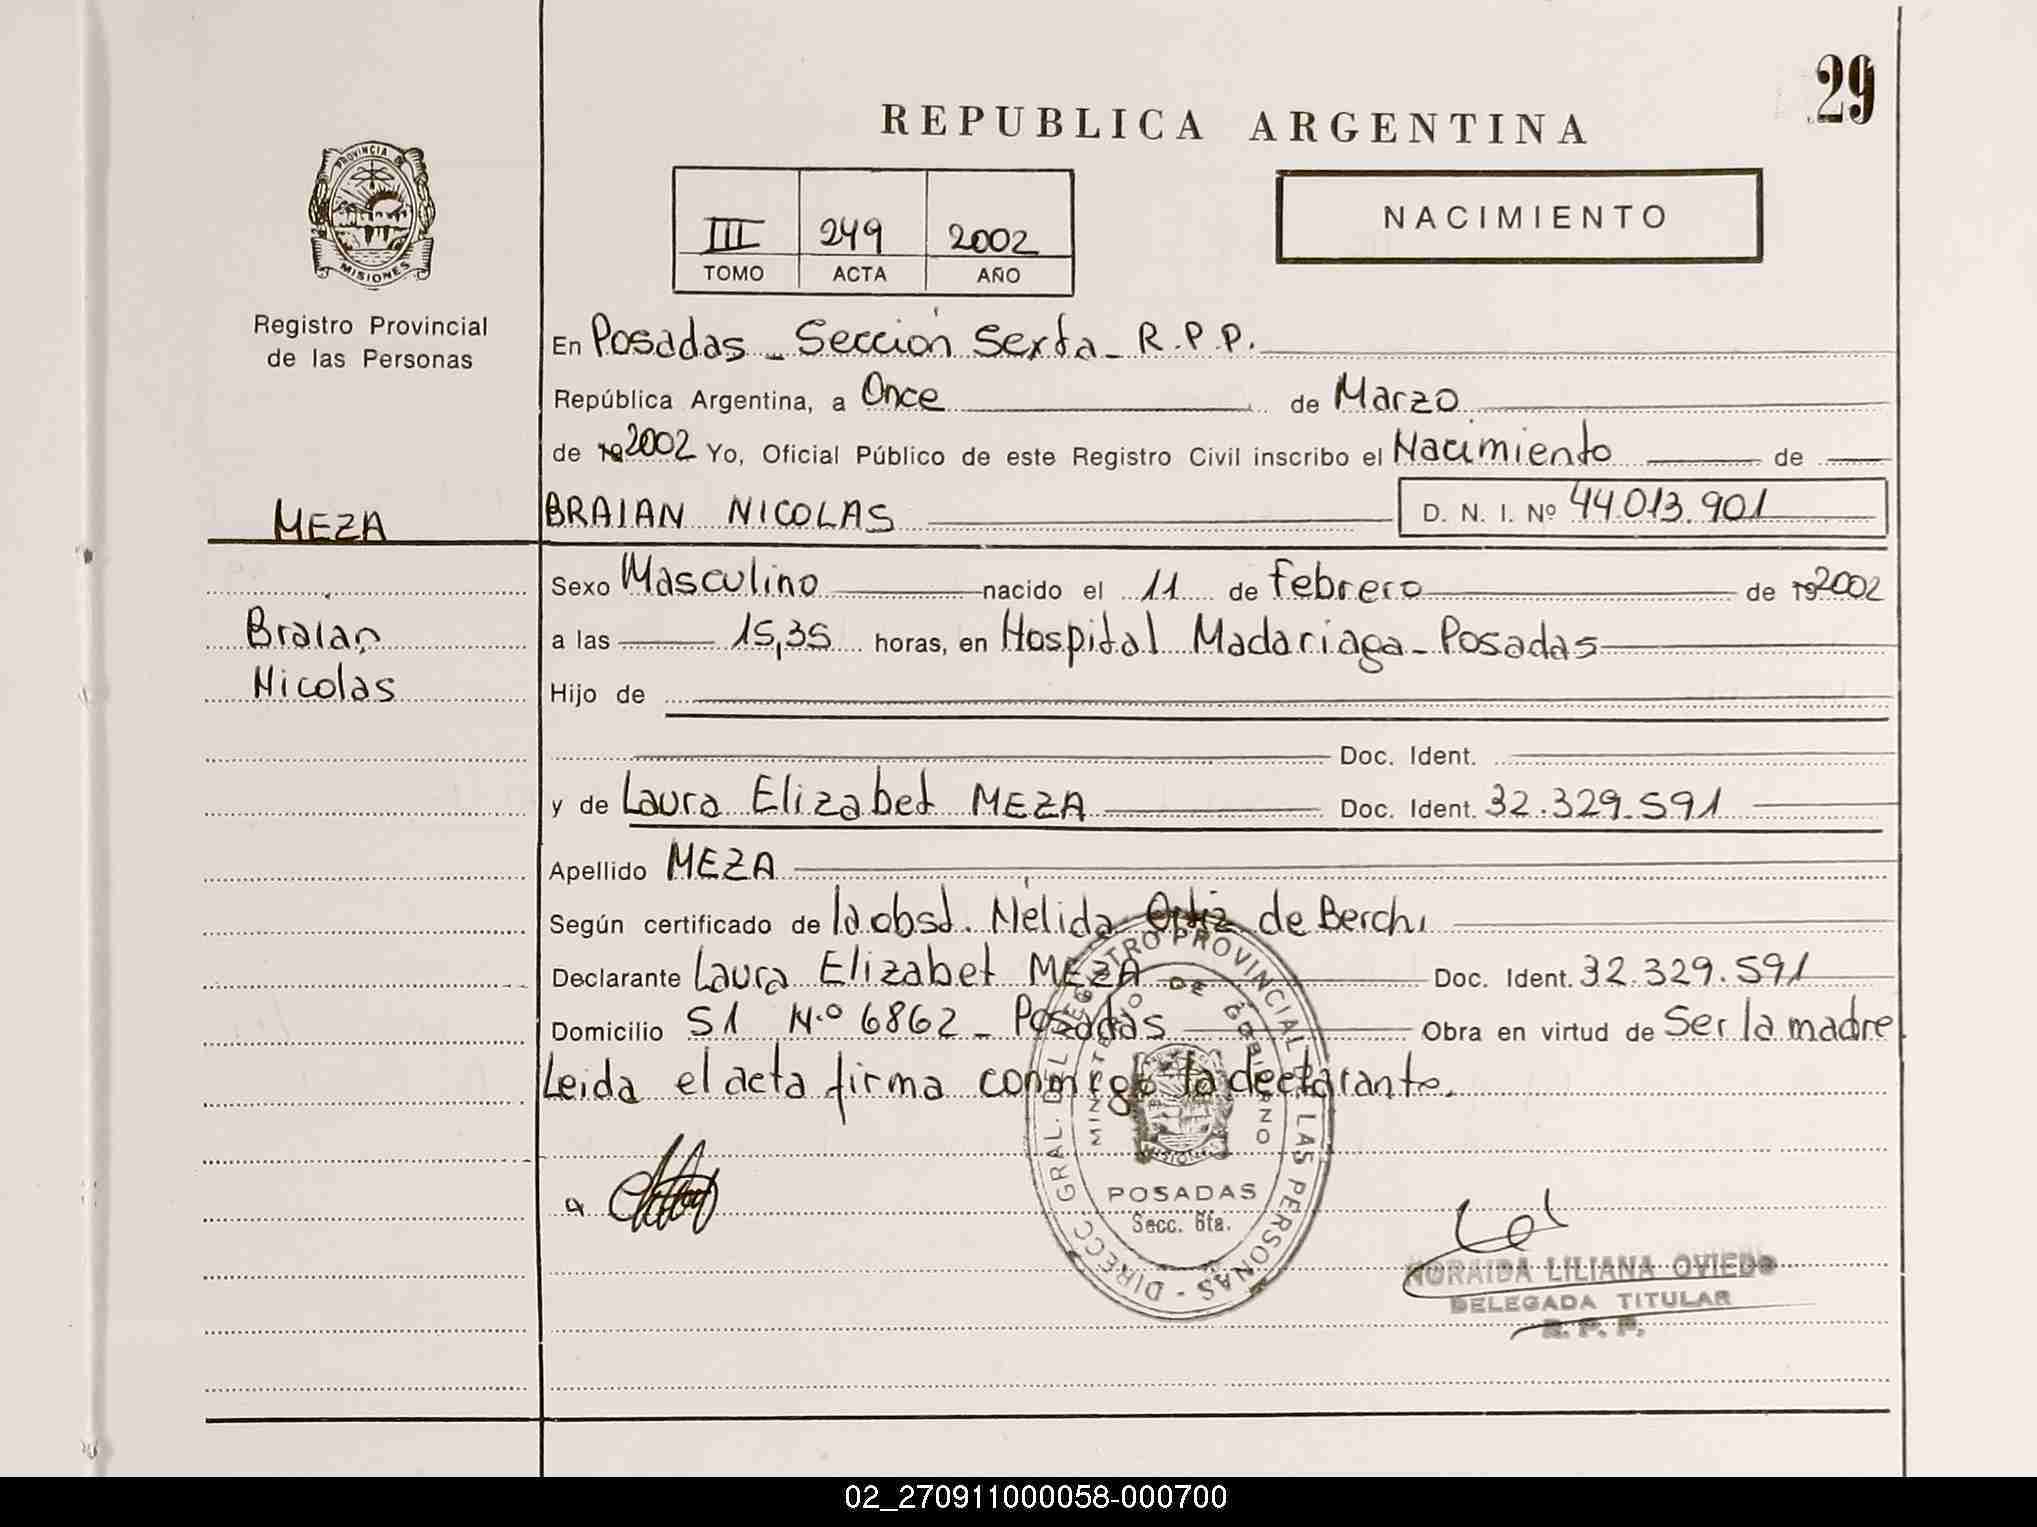 29
REPUBLICA ARGENTINA
PROVINCIA DE
MISIONES
III 249 2002
TOMO ACTA AÑO
NACIMIENTO
Registro Provincial
de las Personas
En Posadas - Sección Sexta - R.P.P.
República Argentina, a Once de Marzo
de 19 2002 Yo, Oficial Público de este Registro Civil inscribo el Nacimiento de
MEZA BRAIAN NICOLAS D. N. I. Nº 44.013.901
Sexo Masculino nacido el 11 de Febrero de 19 2002
Braian a las 15,35 horas, en Hospital Madariaga - Posadas
Nicolas Hijo de
Doc. Ident.
y de Laura Elizabet MEZA Doc. Ident. 32.329.591
Apellido MEZA
Según certificado de la obst. Nélida Ortiz de Berchi
Declarante Laura Elizabet MEZA Doc. Ident. 32.329.591
Domicilio S1 N.º 6862 - Posadas Obra en virtud de Ser la madre
Leida el acta firma conmigo la declarante.
DIRECC GRAL. DEL REGISTRO PROVINCIAL DE LAS PERSONAS -
MINISTERIO DE GOBIERNO
MISIONES
POSADAS
Secc. 6ta.
NORAIDA LILIANA OVIEDO
DELEGADA TITULAR
R. P. P.
02_270911000058-000700